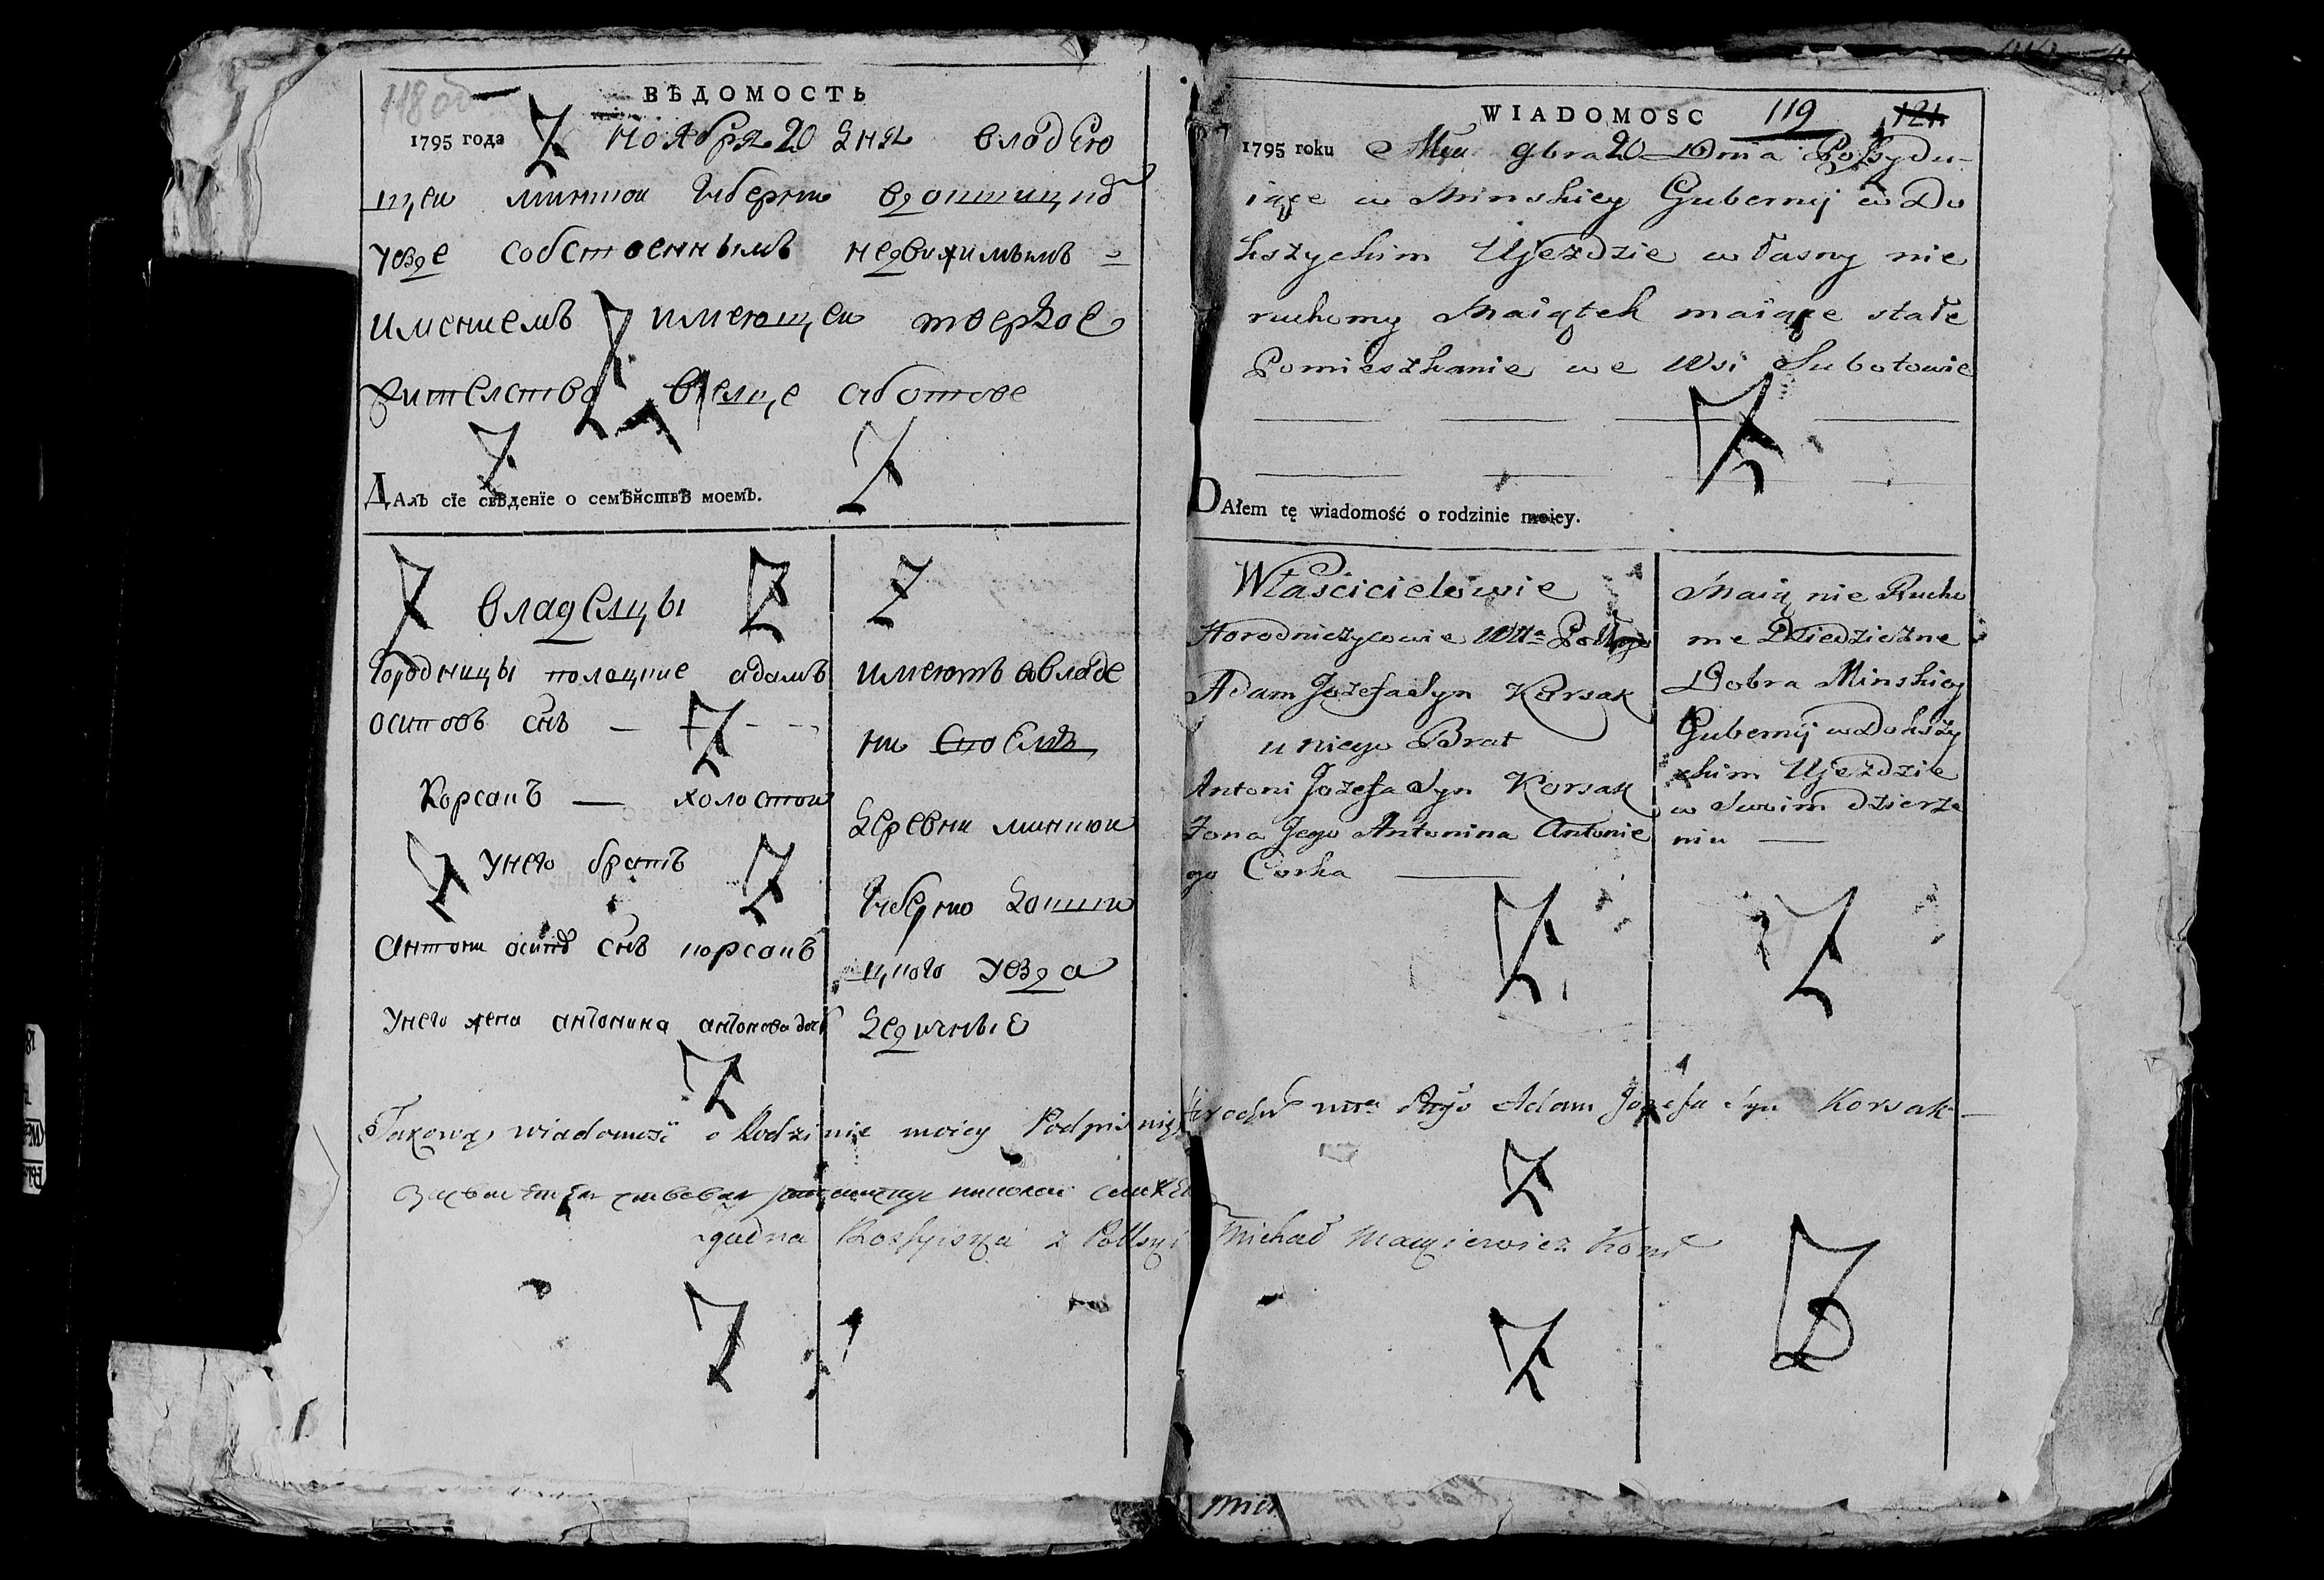 118 об
ВѢДОМОСТЬ
1795 года ноября 20 дня владею
щеи минскои губерни вдокшицкомъ
уезде собственнымъ недвижимымъ
имениемъ имеющеи твердое
жителство вселце суботове
ДАлъ сїе свѣденїе о семѣйствѣ моемъ.
владелцы
городницы полоцкие адамъ
осиповъ снъ
Корсакъ — холостои
унего братъ
Антони осипо снъ корсакъ
унего жена антонина антонова доч
имеютъ авладе
ни
деревни минскои
губерно докши
цкого уезда
дедичные
Takową wiadomość o Rodzinie moiey Podpisuię
godna Rossyiska z Polską
WIADOMOSC 119 121
1795 roku Mca 9bra 20 Dnia Possydu-
iące w Minskiey Gubernij w Do
kszyckim Ujezdzie własny nie
ruchomy Maiątek maiące stałe
Pomieszkanie we Wsi Subotowie
DAłem tę wiadomość o rodzinie moiey.
Właścicielowie
Horodniczycowie Wttа
Adam Jozefa Syn Korsak
u niego Brat
Antoni Jozefa Syn Korsak
Zona Jego Antonina Antonie
go Corka
Maią nie Rucho
me Dziedziczne
Dobra Minskiey
Gubernij w Dokszy
ckim Ujezdzie
w Swoim dzierze
niu
Adam Jozefa Syn Korsak
Michał